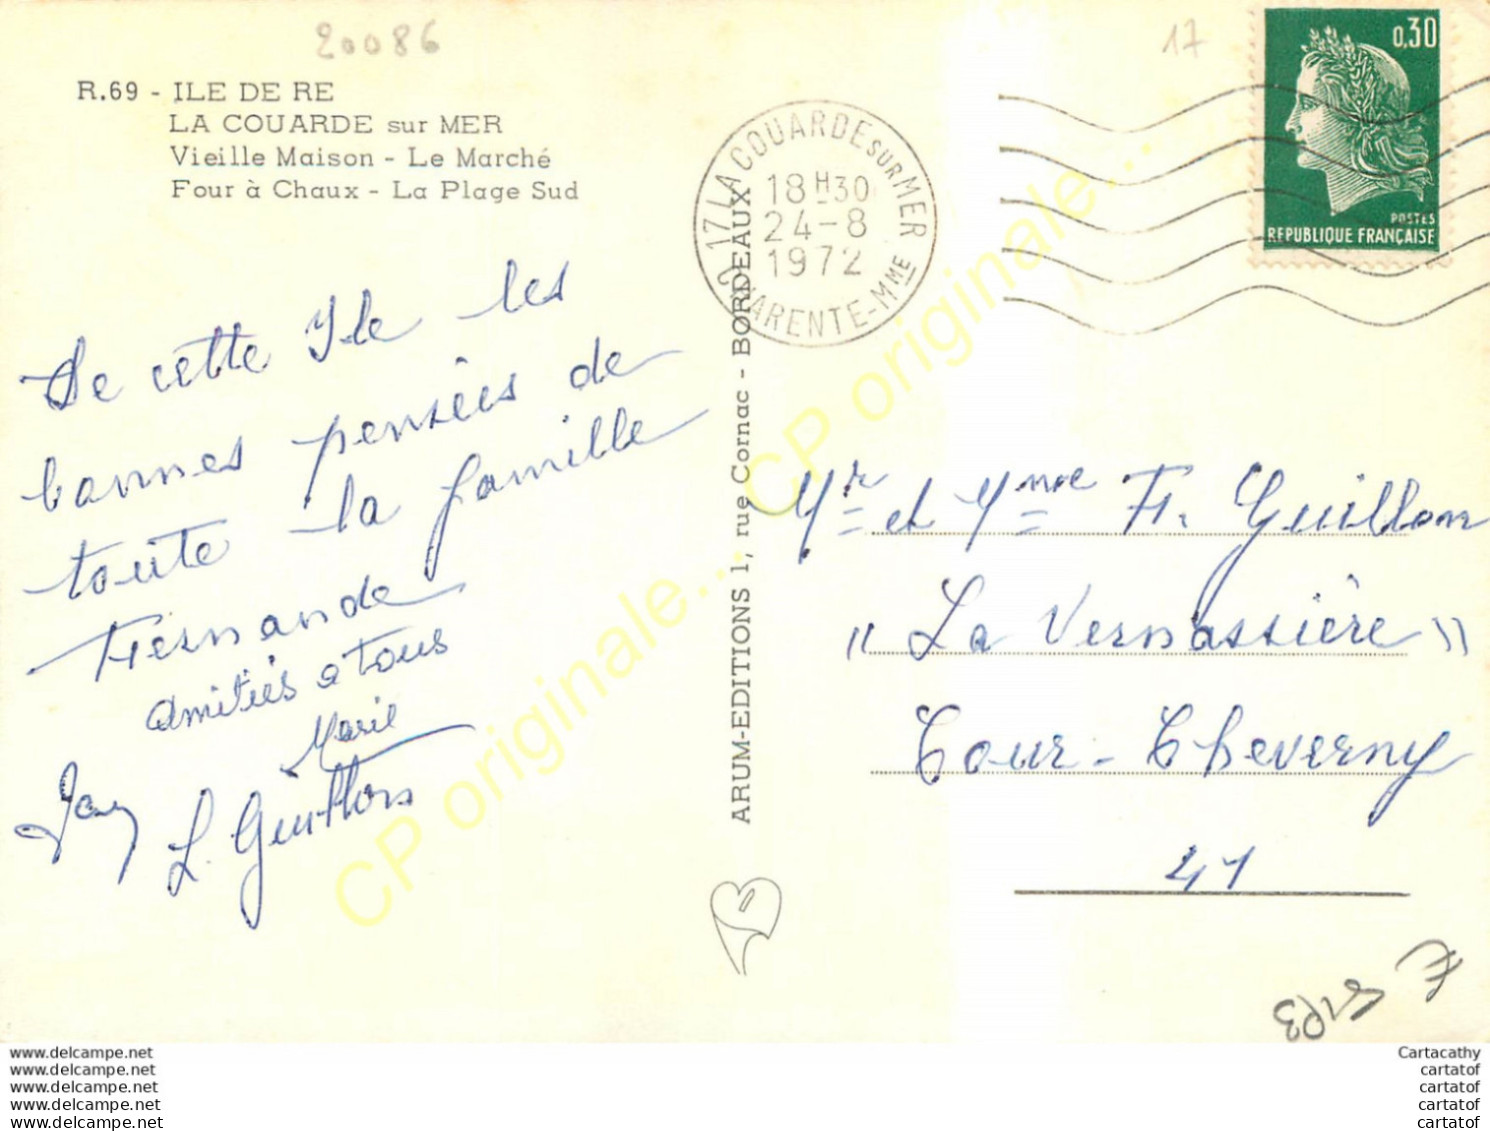 20086
17
R.69 - ILE DE RE
LA COUARDE sur MER
Vieille Maison - Le Marché
Four à Chaux - La Plage Sud
17 LA COUARDE SUR MER
18H30
24-8
1972
CHARENTE-MME
0,30
POSTES
REPUBLIQUE FRANÇAISE
De cette Ile les
bonnes pensées de
toute la famille
Fernande
amitiés a tous
Marie
L. Guillon
ARUM-EDITIONS 1, rue Cornac - BORDEAUX
Mr et Mme F. Guillon
"La Vernassière"
Cour-Cheverny
41
CP originale...
CP originale...
www.delcampe.net
www.delcampe.net
www.delcampe.net
www.delcampe.net
www.delcampe.net
Cartacathy
cartatof
cartatof
cartatof
cartatof